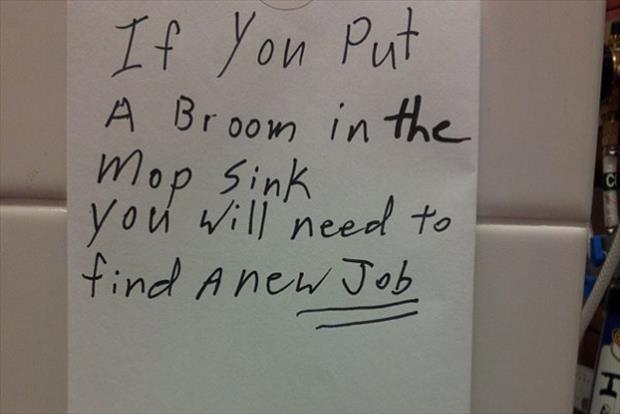 If You Put
A Broom in the
Mop Sink
you will need to
find A new Job